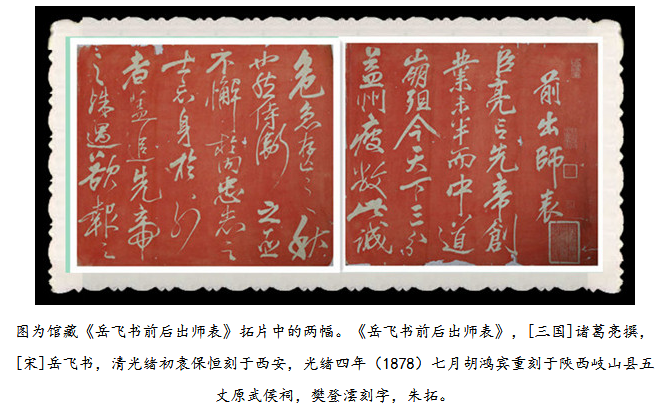 前出師表
臣亮言先帝創
業未半而中道
崩殂今天下三分
益州疲敝此誠
危急存亡之秋
也然侍衛之臣
不懈於內忠志之
士忘身於外
者蓋追先帝
之殊遇欲報之
图为馆藏《岳飞书前后出师表》拓片中的两幅。《岳飞书前后出师表》，[三国]诸葛亮撰，
[宋]岳飞书，清光绪初袁保恒刻于西安，光绪四年（1878）七月胡鸿宾重刻于陕西岐山县五
丈原武侯祠，樊登澐刻字，朱拓。